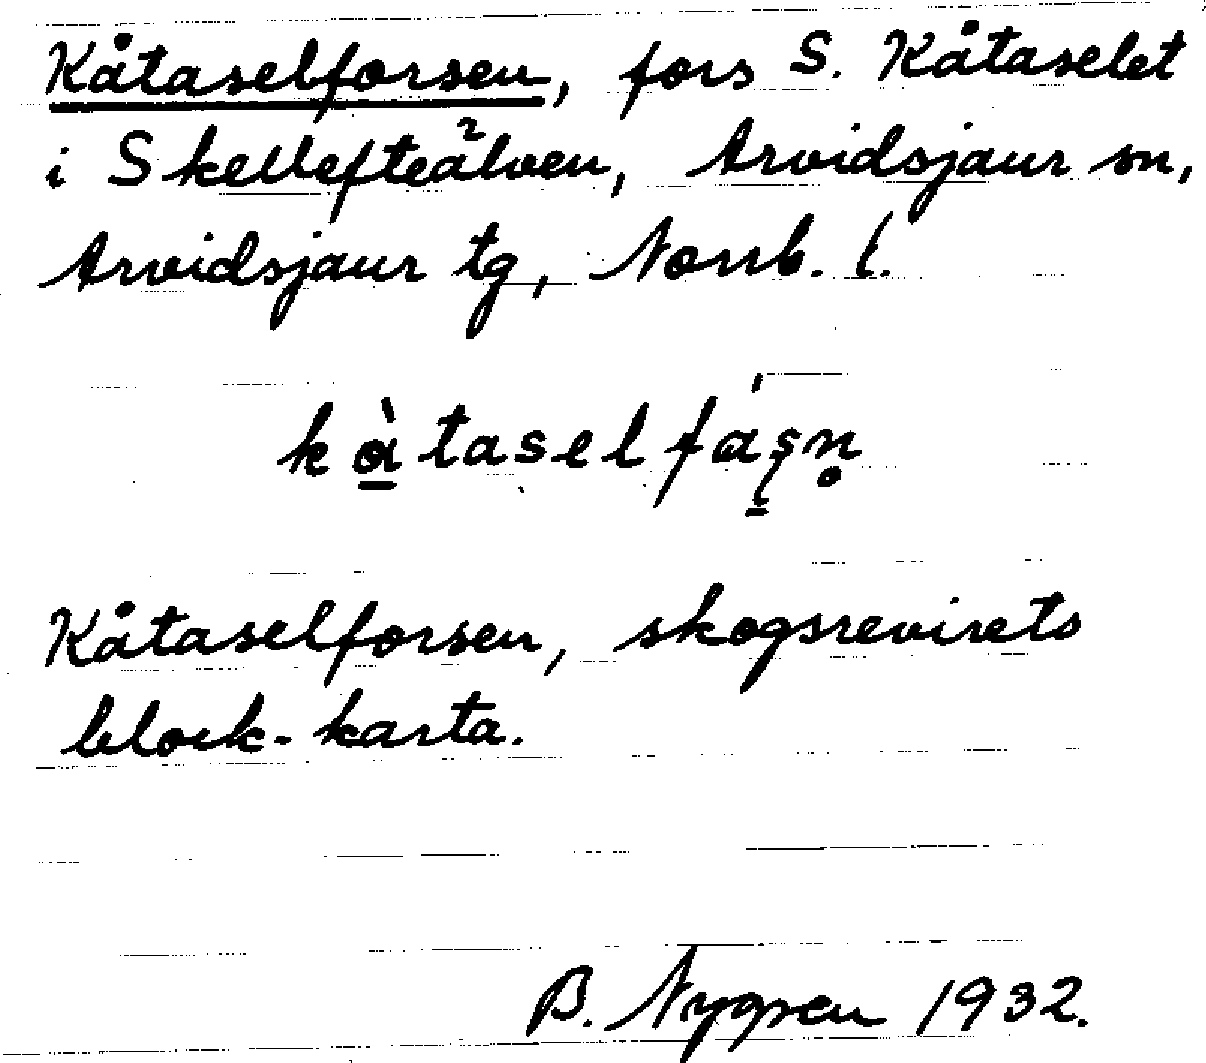 Kåtaselforsen, fors S. Kåtaselet
i Skellefteälven, Arvidsjaur sn,
Arvidsjaur tg, Norrb. l.
kɑ̱̀taselfáʂn̥
Kåtaselforsen, skogsrevirets
block-karta.
B. Nygren 1932.